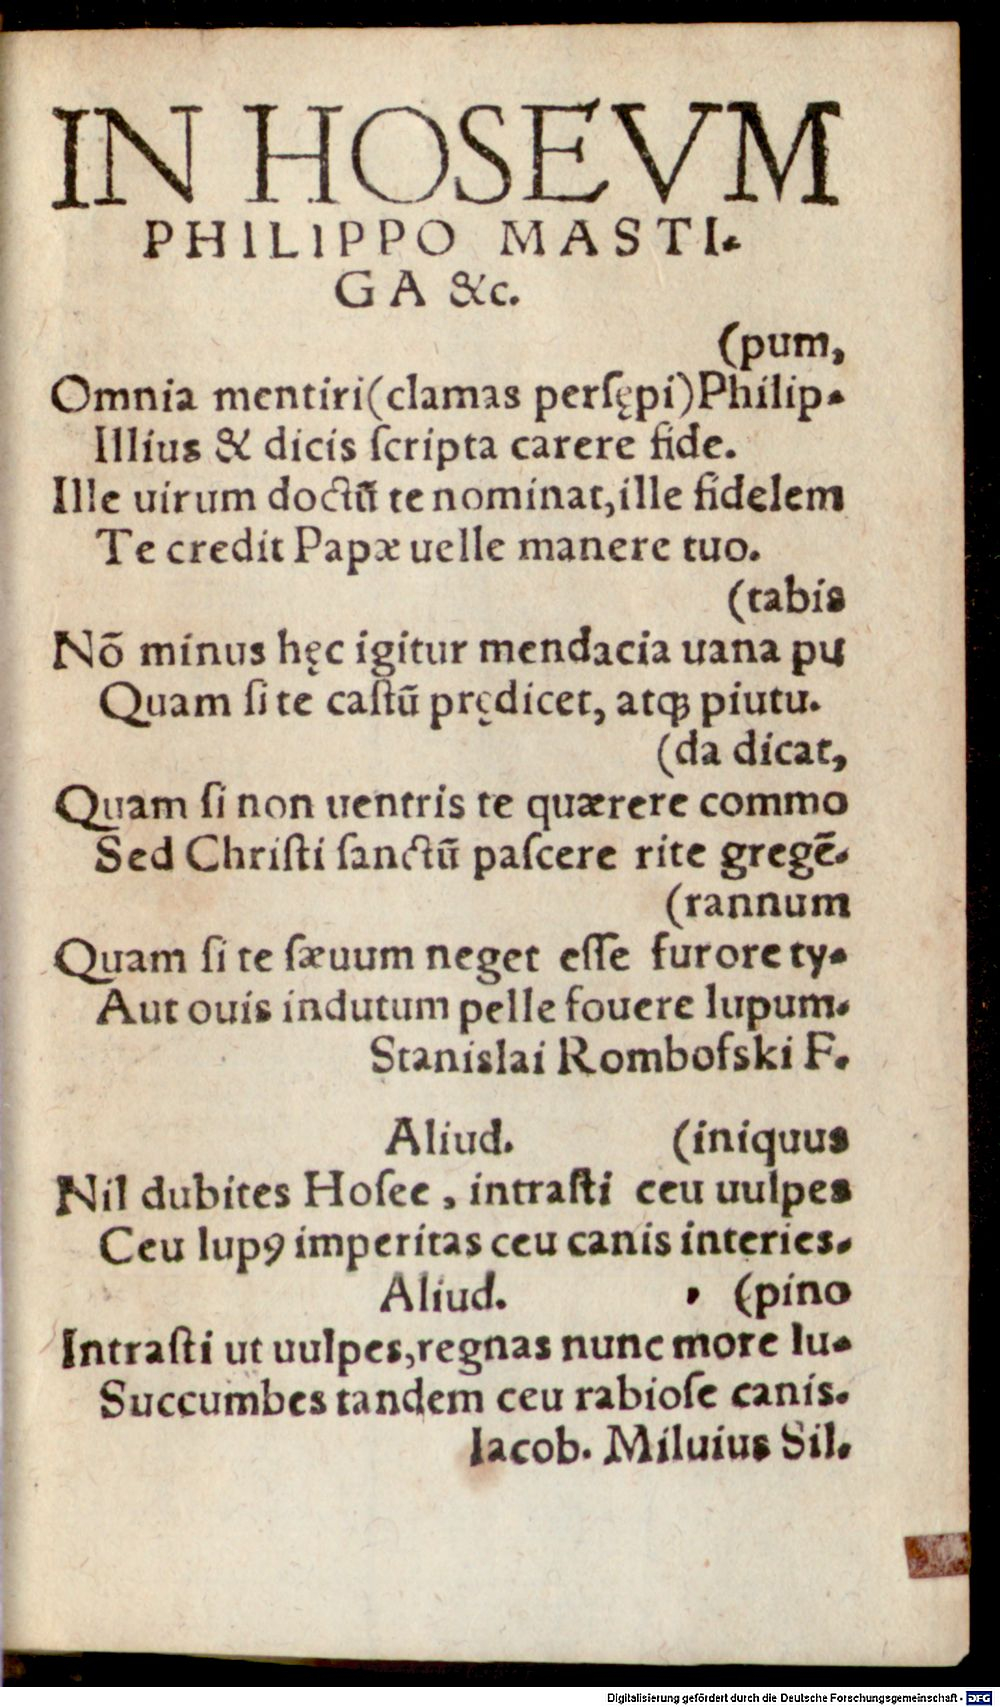 IN HOSEVM
PHILIPPO MASTI-
GA &c.
(pum,
Omnia mentiri(clamas persępi)Philip-
Illius & dicis ſcripta carere fide.
Ille uirum doctū te nominat,ille fidelem
Te credit Papæ uelle manere tuo.
(tabis
Nō minus hęc igitur mendacia uana pu
Quam ſi te caſtū prędicet, atqꝫ piutu.
(da dicat,
Quam ſi non uentris te quærere commo
Sed Chriſti ſanctū paſcere rite gregē.
(rannum
Quam ſi te ſæuum neget eſſe furore ty-
Aut ouis indutum pelle fouere lupum.
Stanislai Rombofski F.
Aliud. (iniquus
Nil dubites Hoſee , intraſti ceu uulpes
Ceu lupꝰ imperitas ceu canis interies.
Aliud. (pino
Intraſti ut uulpes,regnas nunc more lu-
Succumbes tandem ceu rabioſe canis.
Iacob. Miluius Sil.
Digitalisierung gefördert durch die Deutsche Forschungsgemeinschaft - DFG